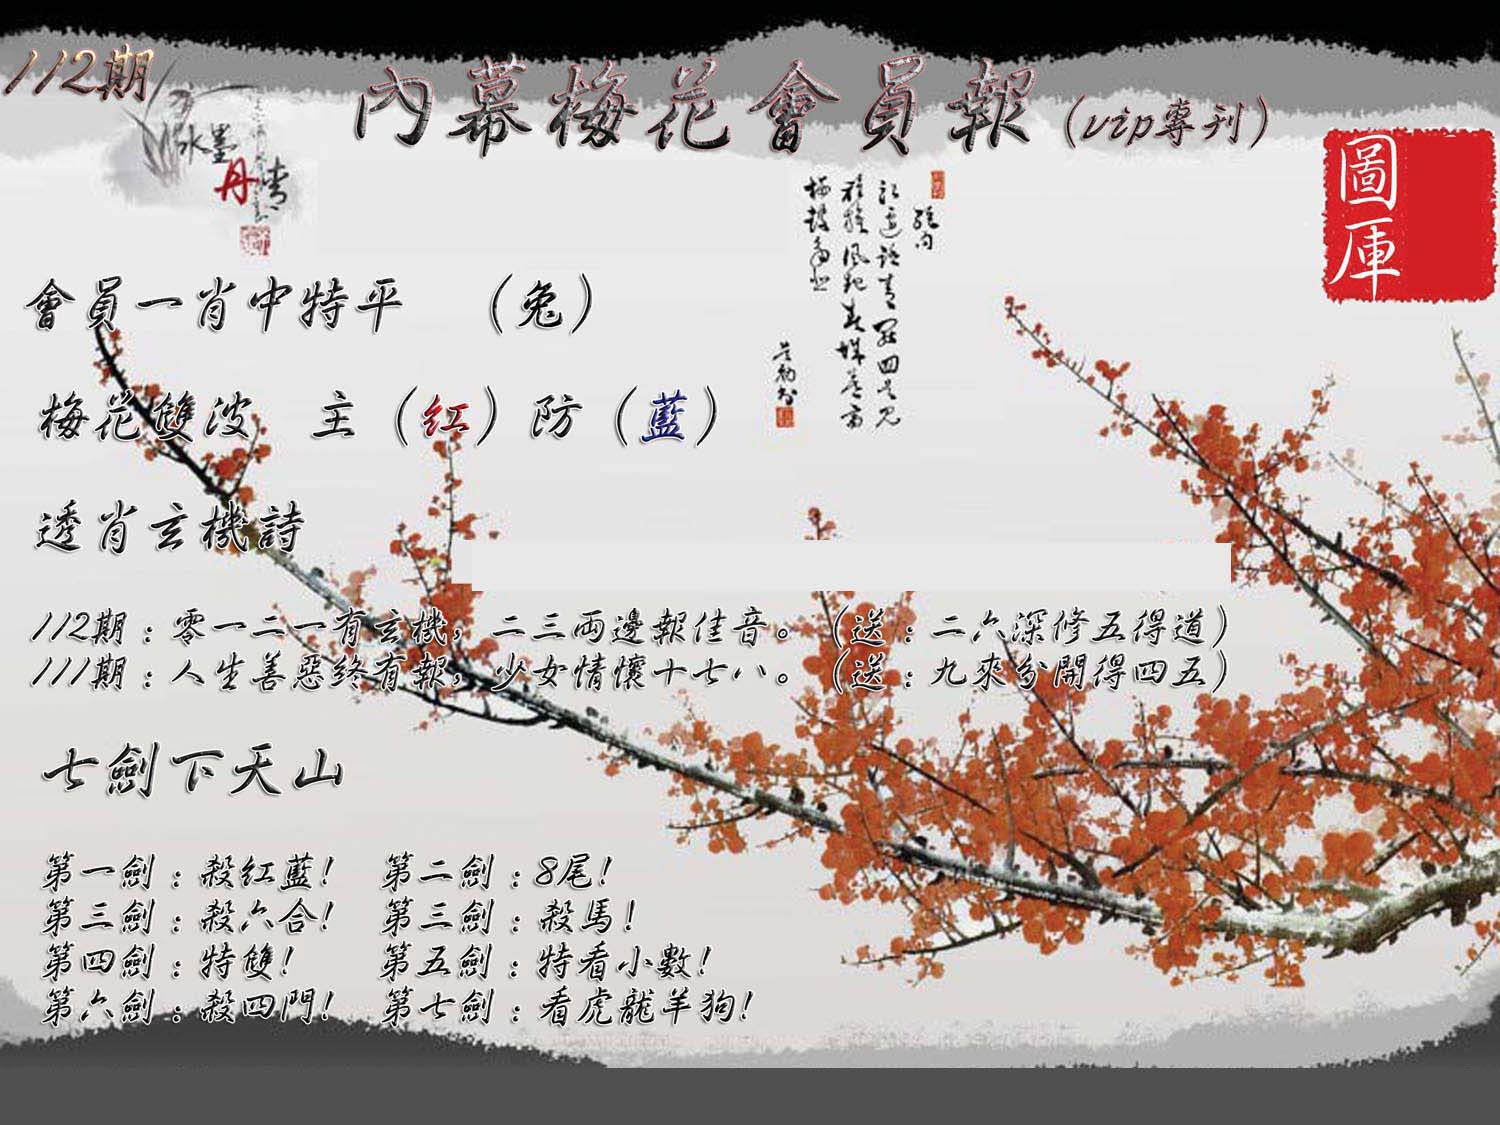 112期
內幕梅花會員報（vip專刊）
水墨
丹青
圖庫
會員一肖中特平　（兔）
梅花雙波　主（紅）防（藍）
透肖玄機詩
112期：零一二一有玄機，二三兩邊報佳音。（送：二六深修五得道）
111期：人生善惡終有報，少女情懷十七八。（送：九來分開得四五）
七劍下天山
第一劍：殺紅藍！　第二劍：8尾！
第三劍：殺六合！　第三劍：殺馬！
第四劍：特雙！　第五劍：特看小數！
第六劍：殺四門！　第七劍：看虎龍羊狗！